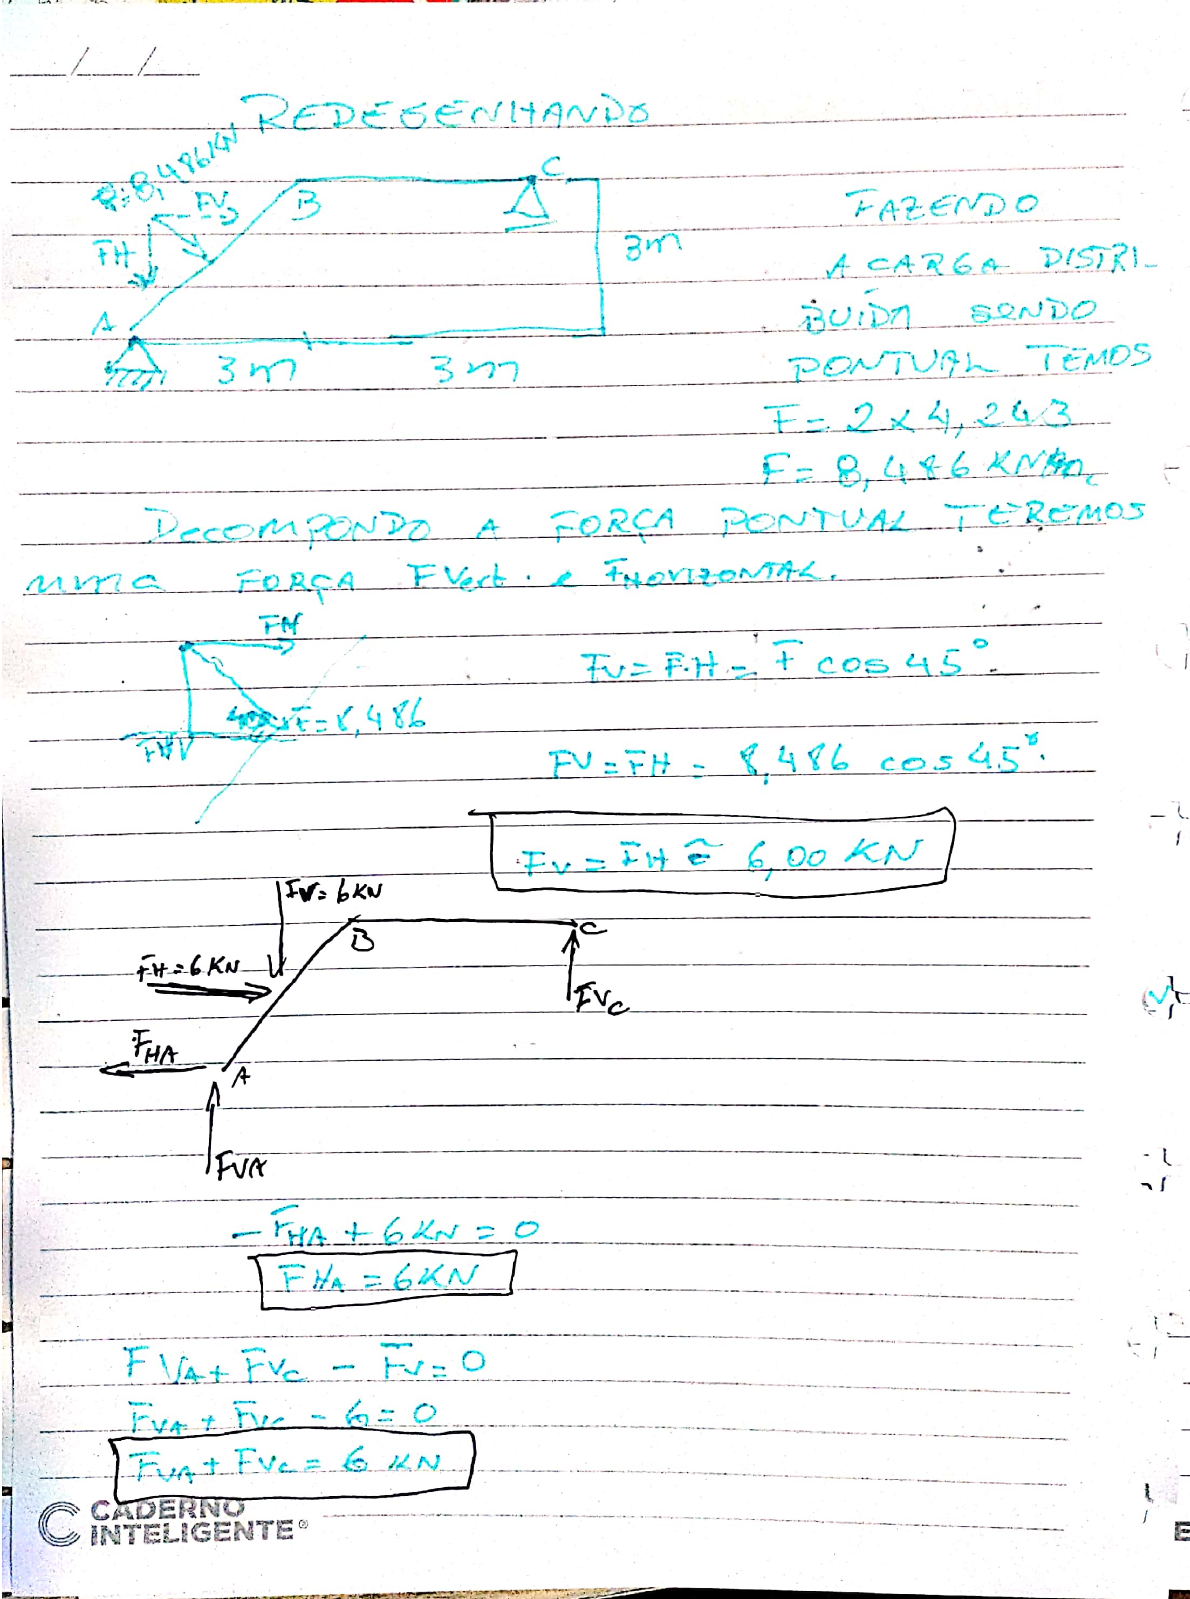 REDESENHANDO
Q=8,486KN
FV
FH
B
C
A
3m
3m
3m
FAZENDO
A CARGA DISTRI-
BUIDA SENDO
PONTUAL TEMOS
F = 2 x 4,243
F = 8,486 KN
DECOMPONDO A FORÇA PONTUAL TEREMOS
uma FORÇA FVert. e FHORIZONTAL.
FH
F=8,486
FV
FV = F.H = F cos 45°.
FV = FH = 8,486 cos 45°.
FV = FH ≅ 6,00 KN
FV = 6 KN
B
C
FH = 6 KN
FVC
FHA
A
FVA
- FHA + 6 KN = 0
FHA = 6 KN
FVA + FVC - FV = 0
FVA + FVC - 6 = 0
FVA + FVC = 6 KN
CADERNO
INTELIGENTE®